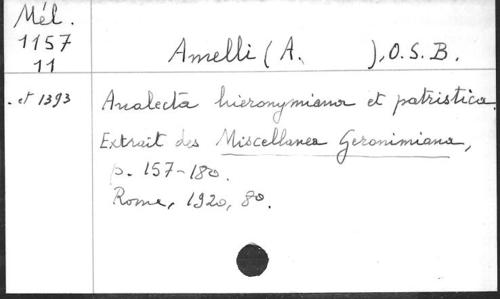 Mél.
1157
11
Amelli (A. ), O.S.B.
. et 1393
Analecta hieronymiana et patristica.
Extrait des Miscellanea Geronimiana,
p. 157-180.
Rome, 1920, 8o.